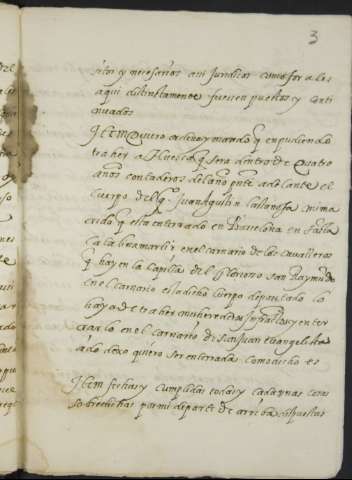 3
sitos y necesarios assi juridicos como for ales
aqui distinctamente fuessen puestos y conti
nuados
Item quiero ordeno y mando q en pudiendo
traher a Huesca q sera dentro de quatro
años contaderos del año pnte adelante el
cuerpo del q. Juan Agustin Lastanosa mi ma
rido q esta enterrado en Barcelona en Santa
Catherina Martir en el carnario de los Cavalleros
q hay en la Capilla del glorioso san Raymdo
en el carnario esta dicho cuerpo depositado lo
haya de traher mi heredero infrascripto y enter
rarlo en el carnario de San Juan Evangelista
a do dexo quiero ser enterrada como dicho es
Item fechas y cumplidas todas y cada unas cosas
sobredichas por mi de parte de arriba dispuestas